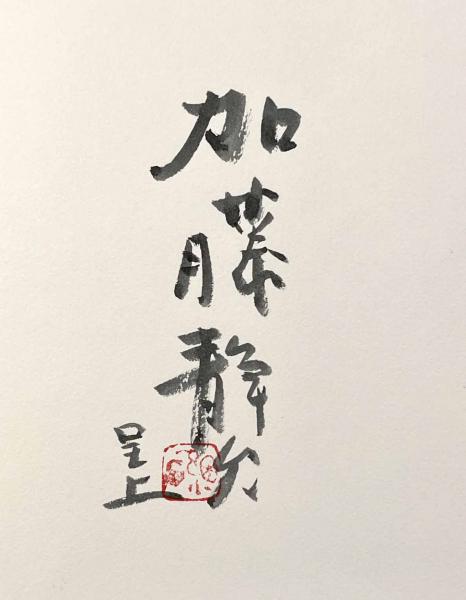 加藤静允
呈上